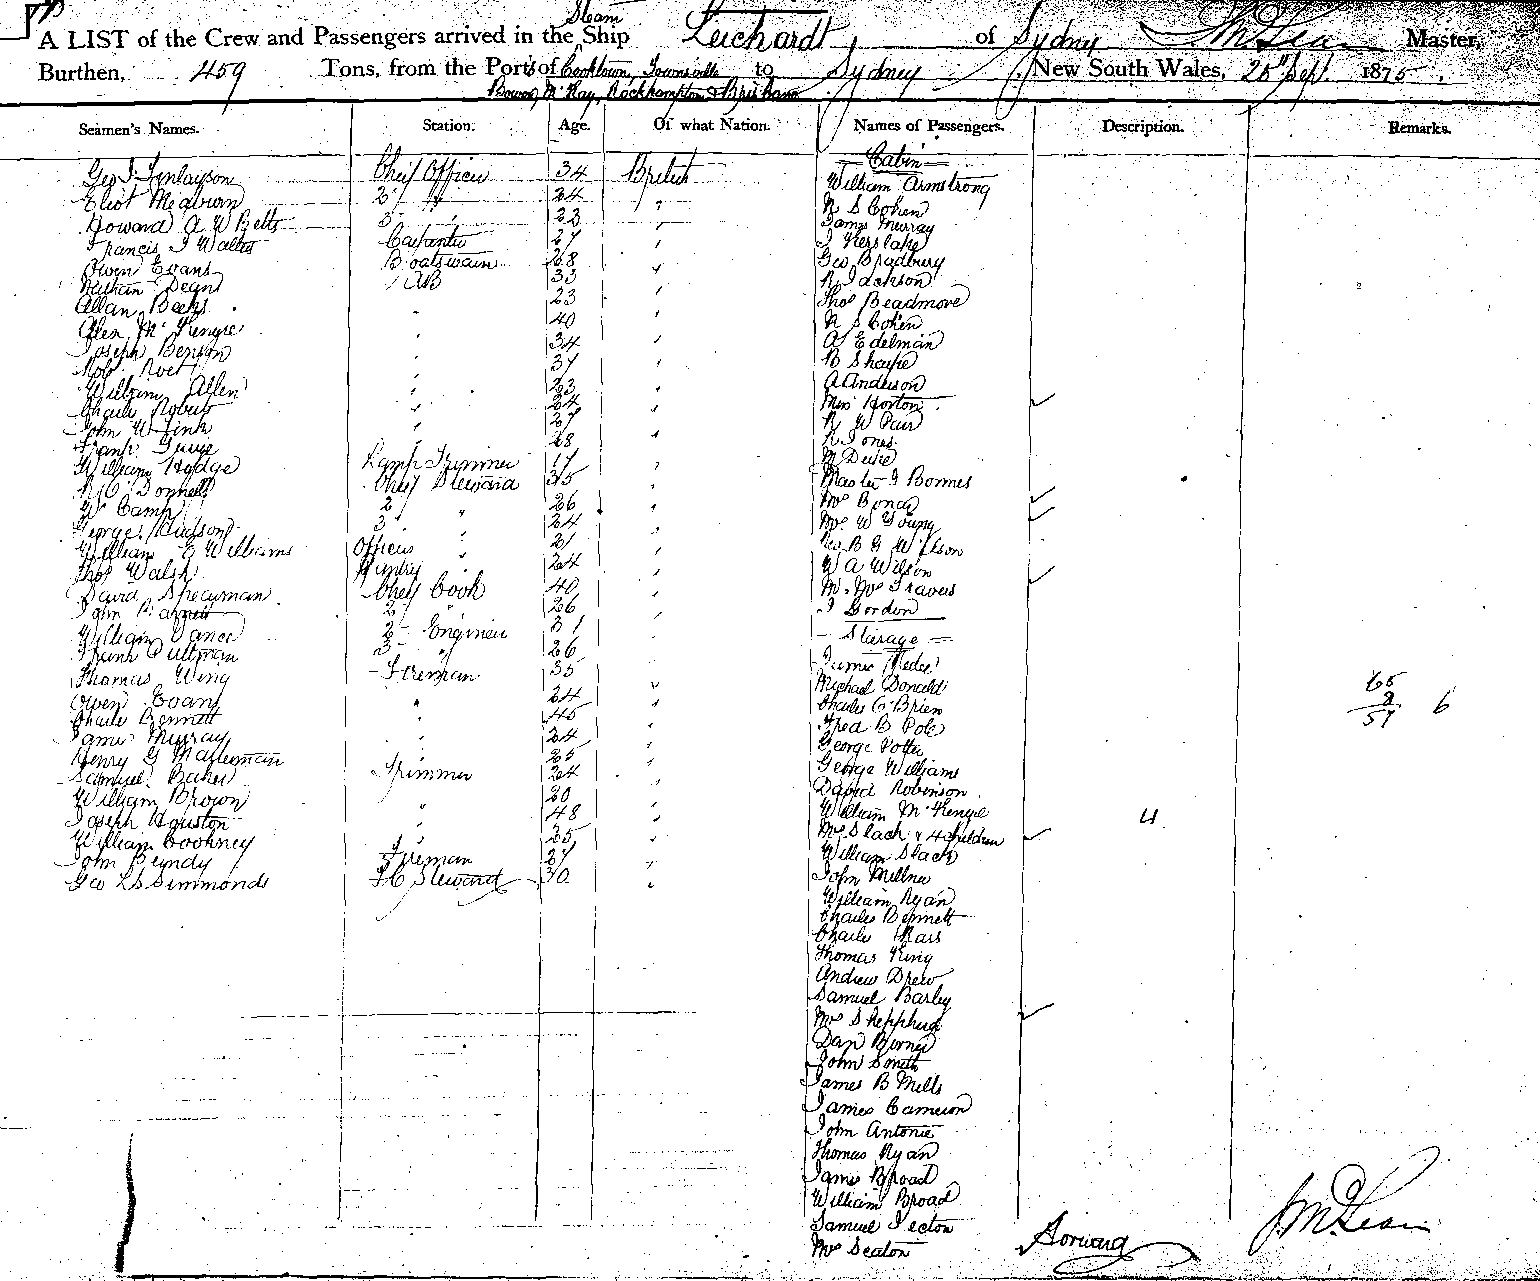 Steam
A LIST of the Crew and Passengers arrived in the Ship Leichardt of Sydney McLean Master,
Burthen, 459 Tons, from the Ports of Cooktown, Townsville to Sydney New South Wales, 25th Sept. 1875.
Bowen, McKay, Rockhampton & Brisbane
Seamen's Names. Station. Age. Of what Nation. Names of Passengers. Description. Remarks.
Geo J Finlayson Chief Officer 34 British
Eliot 2 " 24 "
Howard A W Betts 3 " 23 "
Francis J Walter Carpenter 27 "
Owen Evans Boatswain 28 "
Nathan Dean AB 33 "
Allan 23 "
Allen McKenzie " 40 "
Joseph Benson 34 "
Robt 37 "
William Allen " 23 "
Charles Robert " 24 "
John W Fink " 27 "
Frank " 28 "
William Hodge Lamp Trimmer 17 "
Chief Steward 35 "
W Camp 2 " 26 "
George Hudson 3 " 24 "
William E Williams Officers " 21 "
Thos Walsh Pantry " 24 "
David Spearman Chief Cook 40 "
John Barrett 2 " 26 "
William Vance 2 Engineer 31 "
Frank Pullman 3 " 26 "
Thomas Wing Fireman 35 "
Owen Evans " 24 "
Charles Bennett " 45 "
James Murray " 24 "
Henry G 25 "
Samuel Baker Trimmer 24 "
William Brown 20 "
Joseph Houston " 48 "
William Cookney " 25 "
John Bundy Fireman 27 "
Geo L S Simmonds F C Steward 30 "
Cabin
William Armstrong
N S Cohen
James Murray
J Kerslake
Geo Bradbury
R Jackson
Thos Beadmore
N S Cohen
A Edelman
B Sharpe
A Anderson
Miss Horton
R W Pair
R Jones
M Duke
Master J Bonnes
Mrs
Mrs W Young
B G Wilson
W A Wilson
Mr. Mrs Travers
J Gordon
Starage
James
Michael Donald
Charles O'Brien
Fred B Pole
George Potter
George Williams
David Robinson
William McKenzie
Mrs Slack & 4 children 4
William Slack
John Millner
William Ryan
Charles Bennett
Charles
Thomas King
Andrew Drew
Samuel Barley
Mrs Shepphard
Dan
John Smith
James B Mills
James Cameron
John Antonie
Thomas Ryan
James Broad
William Broad
Samuel
Mrs Seaton
65
8
57 6
J McLean